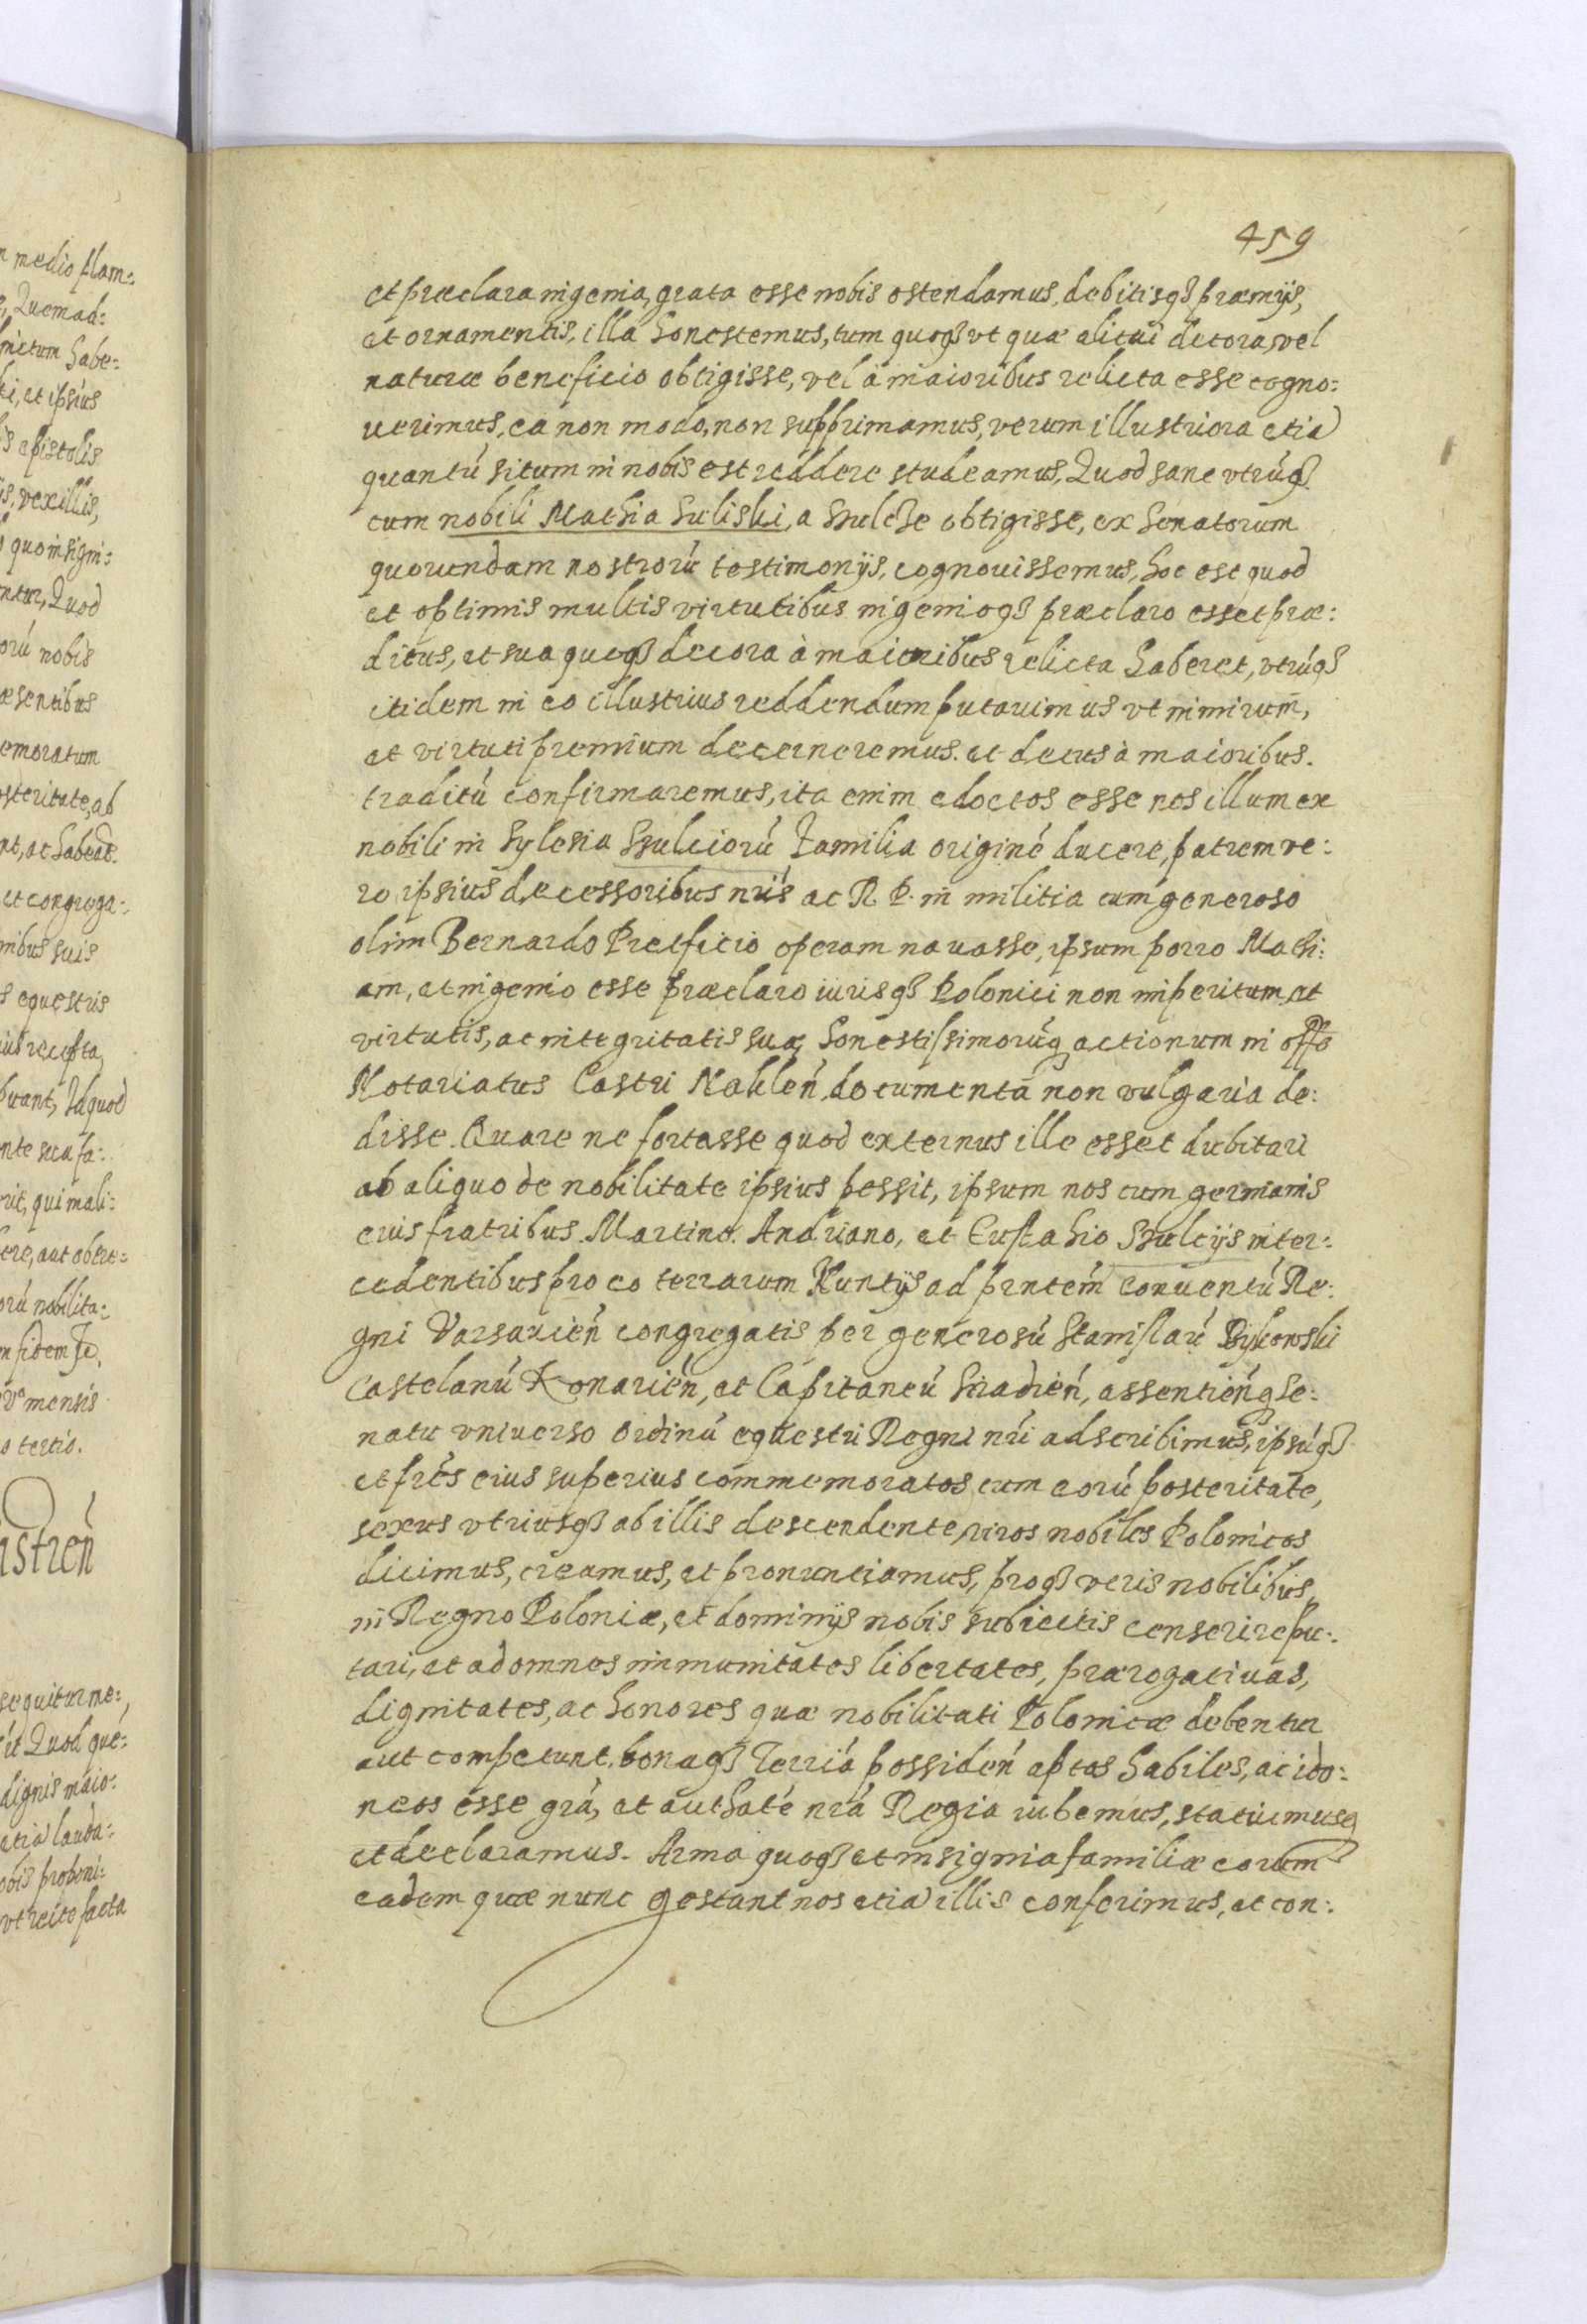 459
et præclara ingenia, grata esse nobis ostendamus, debitisqꝫ præmijs,
et ornamentis, illa honestemus, tum quoqꝫ vt quæ alicui decora, vel
naturæ beneficio obtigisse, vel à maioribus relicta esse cogno:
uerimus, ea non modo, non supprimamus, verum illustriora etiā
quantū situm in nobis est reddere studeamus, Quod sane vtrūqꝫ
cum nobili Mathia Suliski, a Szulcze obtigisse, ex Senatorum
quorundam nostrorū testimonijs, cognouissemus, hoc est quod
et optimis multis virtutibus ingenioqꝫ præclaro esset præ:
ditus, et sua quoqꝫ decora à maioribus relicta haberet, vtrūqꝫ
itidem in eo illustrius reddendum putauimus vt nimirum,
et virtuti premium decerneremus. et decus à maioribus.
traditū confirmaremus, ita enim edoctos esse nos illum ex
nobili in Sylesia Szulciorū Familia originē ducere, patrem ve:
ro ipsius decessoribus nrīs ac R. P. in militia cum generoso
olim Bernardo Pretficio operam nauasse, ipsum porro Mathi:
am, et ingenio esse præclaro iurisqꝫ Polonici non imperitum, et
virtutis, ac integritatis suæ honestissimorūqꝫ actionum in offo
Notariatus Castri Naklen̄, documenta non vulgaria de:
disse. Quare ne fortasse quod externus ille esset dubitari
ab aliquo de nobilitate ipsius possit, ipsum nos cum germanis
eius fratribus Martino. Andriano, et Eustahio Szulcijs inter:
cedentibus pro eo terrarum Nuntijs ad prntem̄ conuentū Re:
gni Varsauien̄ congregatis per generosū Stanislaū Bykowski
Castelanū Konarien̄, et Capitaneū Siradien̄, assentien̄qꝫ Se:
natu vniuerso ordinū equestri Regni nrī adscribimus, ipsūqꝫ
et frēs eius superius commemoratos cum eorū posteritate,
sexus vtriusqꝫ ab illis descendente, viros nobiles Polonicos
dicimus, creamus, et pronunciamus, proqꝫ veris nobilibus,
in Regno Poloniæ, et dominijs nobis subiectis censeri repu:
tari, et ad omnes immunitates libertates, prærogatiuas,
dignitates, ac honores quæ nobilitati Polonicæ debentur
aut competunt, bonaqꝫ Terria possiden̄ aptos habiles, ac ido:
neos esse grā, et authatē nrā Regia iubemus, statuimusqꝫ
et declaramus. Arma quoqꝫ et insignia familiæ eorum
eadem quæ nunc gestant nos etiā illis conferimus, et con: